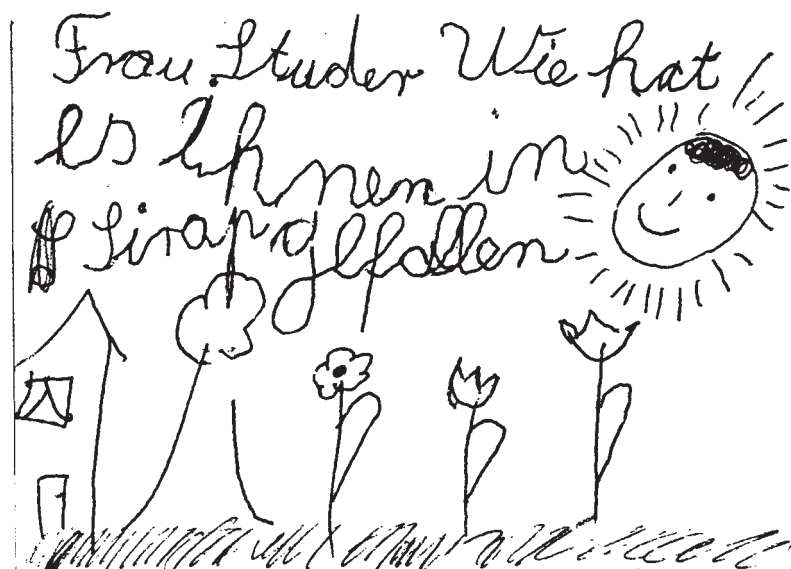 Frau Studer Wie hat
es Ihnen in
Sirapa gefallen